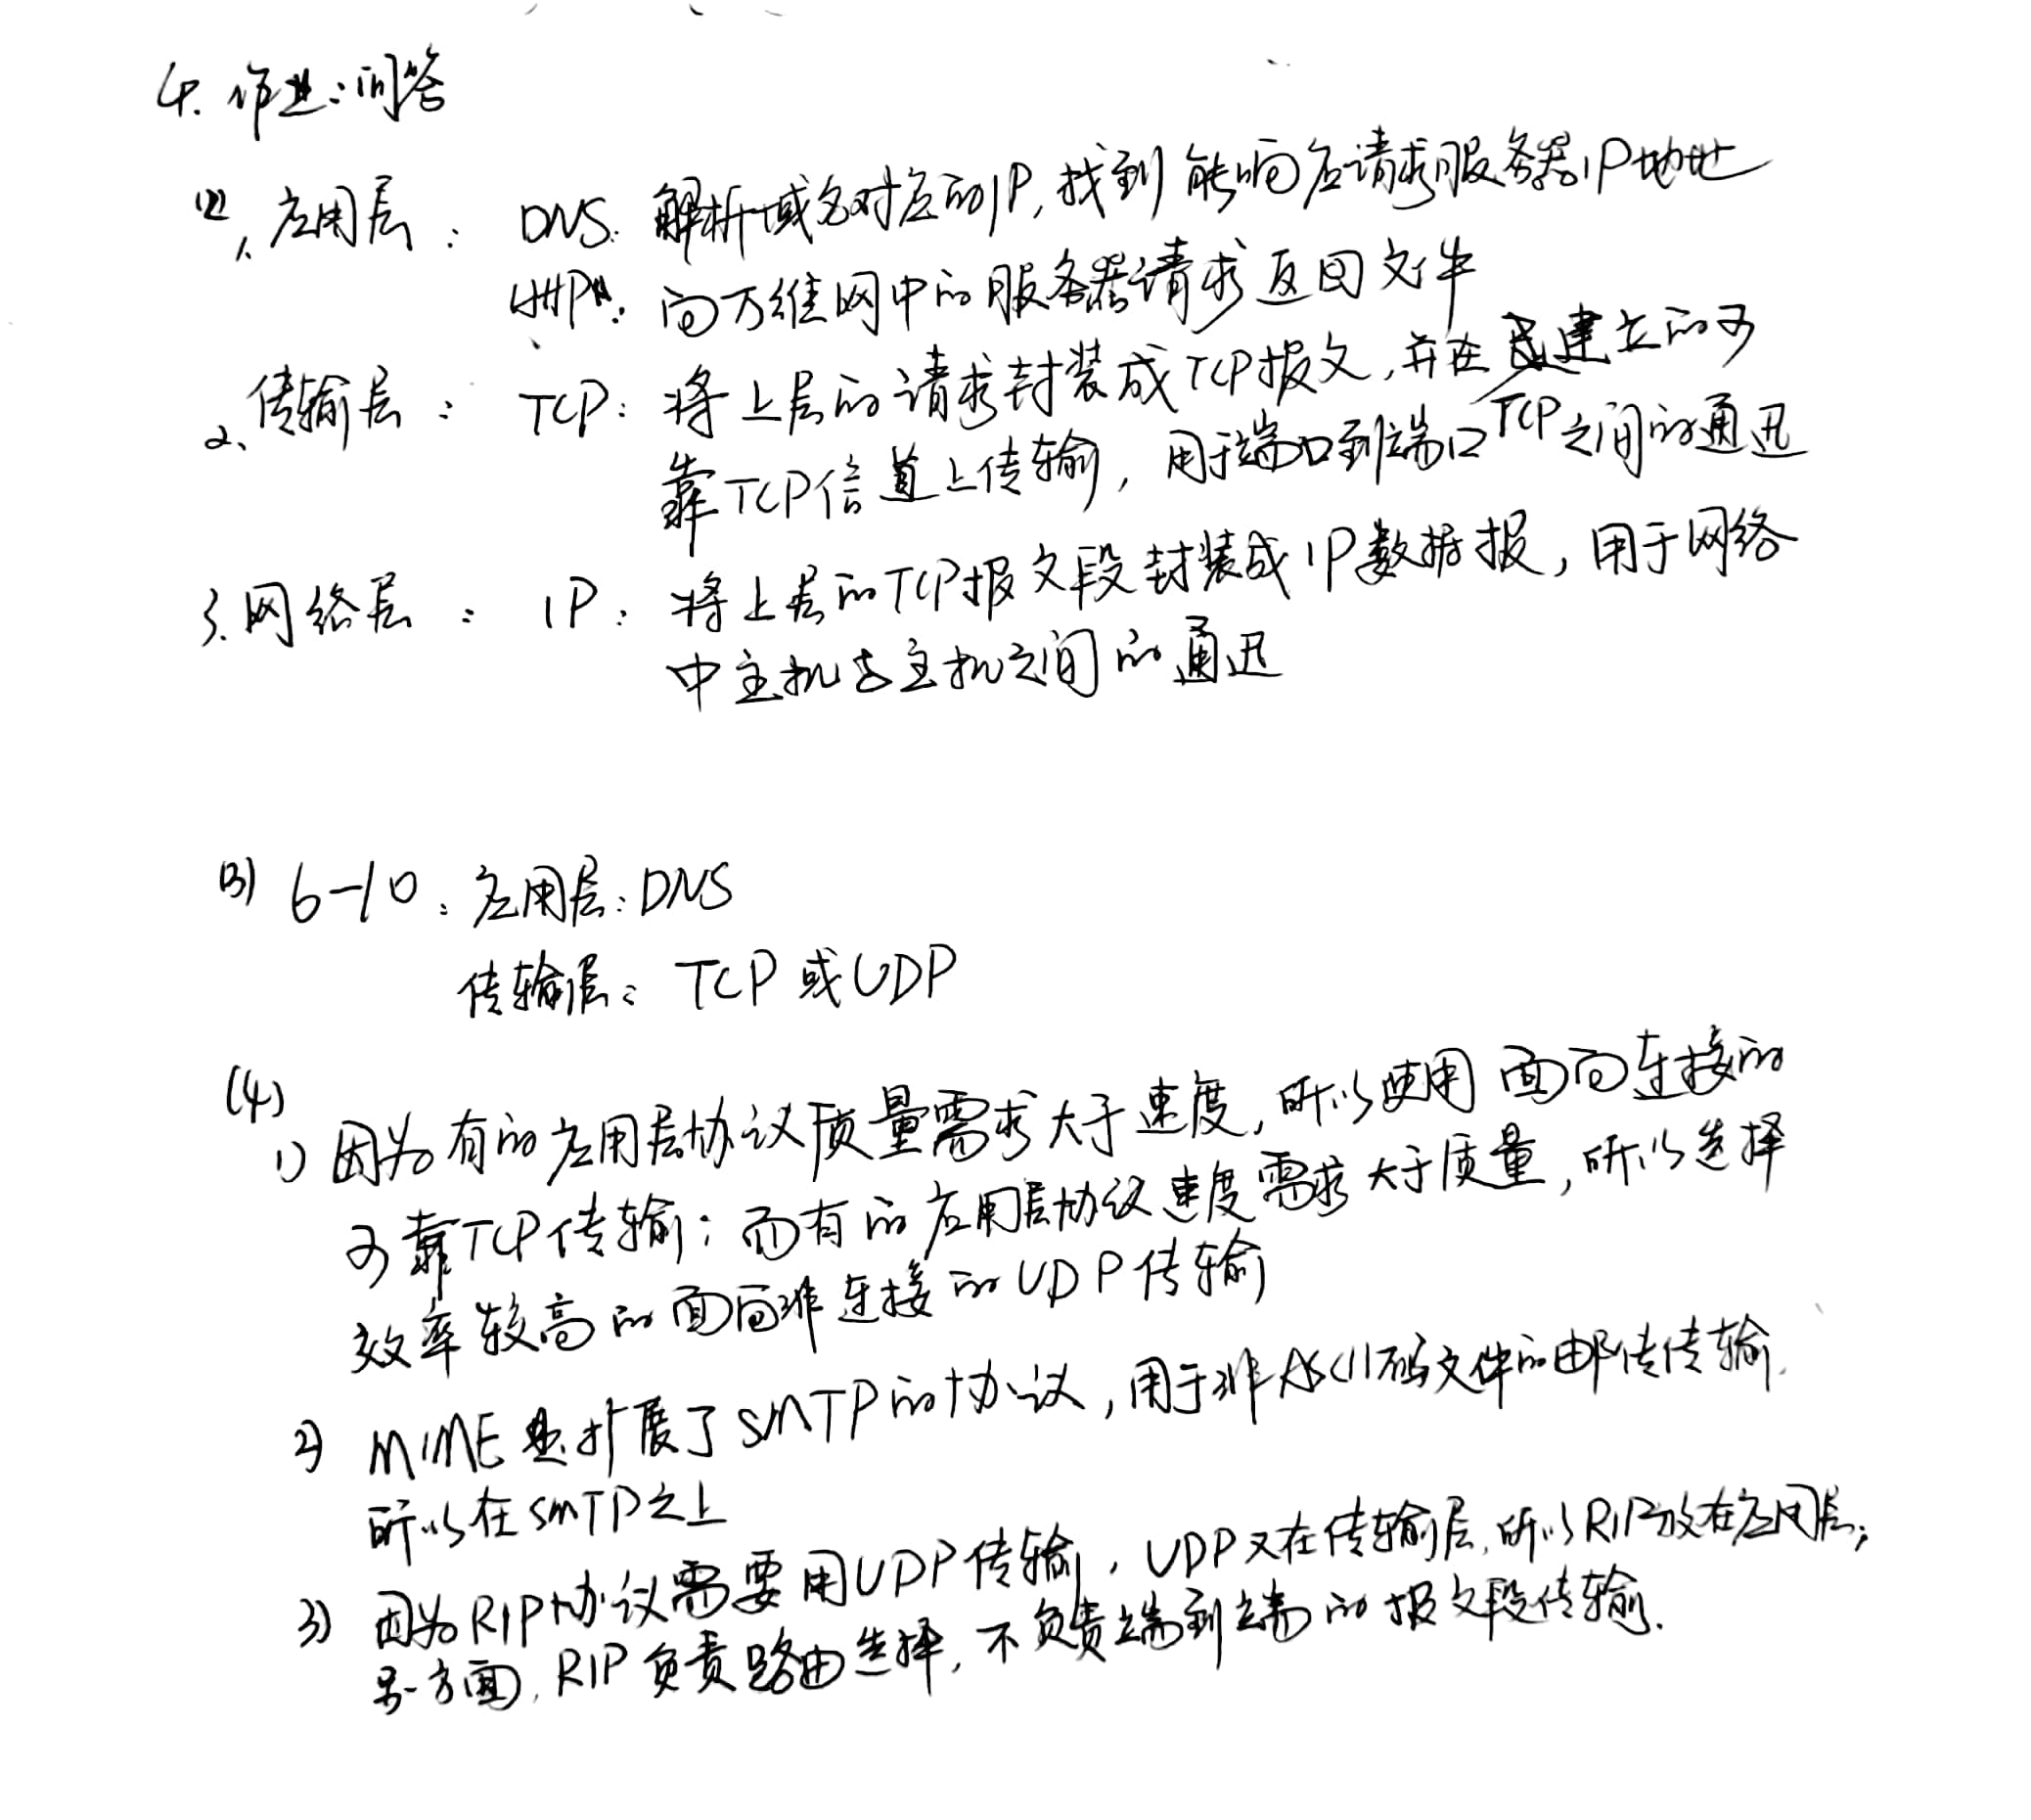 4. 作业:问答
(2)
1、应用层: DNS: 解析域名对应的IP,找到能响应请求服务器IP地址
HTTP: 向万维网中的服务器请求返回文件
2、传输层: TCP: 将上层的请求封装成TCP报文,并在建立的可
靠TCP信道上传输,用于端口到端口TCP之间的通迅
3.网络层: IP: 将上层的TCP报文段封装成IP数据报,用于网络
中主机与主机之间的通迅
(3) 6-10: 应用层: DNS
传输层: TCP或UDP
(4)
1) 因为有的应用层协议质量需求大于速度,所以使用面向连接的
可靠TCP传输;而有的应用层协议速度需求大于质量,所以选择
效率较高的面向非连接的UDP传输
2) MIME是扩展了SMTP的协议,用于非ASCII码文件的邮传传输.
所以在SMTP之上
3) 因为RIP协议需要用UDP传输,UDP又在传输层,所以RIP放在应用层;
另一方面,RIP负责路由选择,不负责端到端的报文段传输.